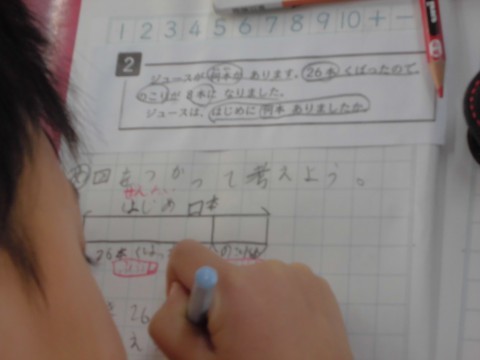 1 2 3 4 5 6 7 8 9 10 + −
2
ジュースが 何本か あります。26本 くばったので、
のこりが 8本に なりました。
ジュースは、はじめに 何本 ありましたか。
図をつかって考えよう。
ぜんたい
はじめ □本
26本 くばった のこり
26
え